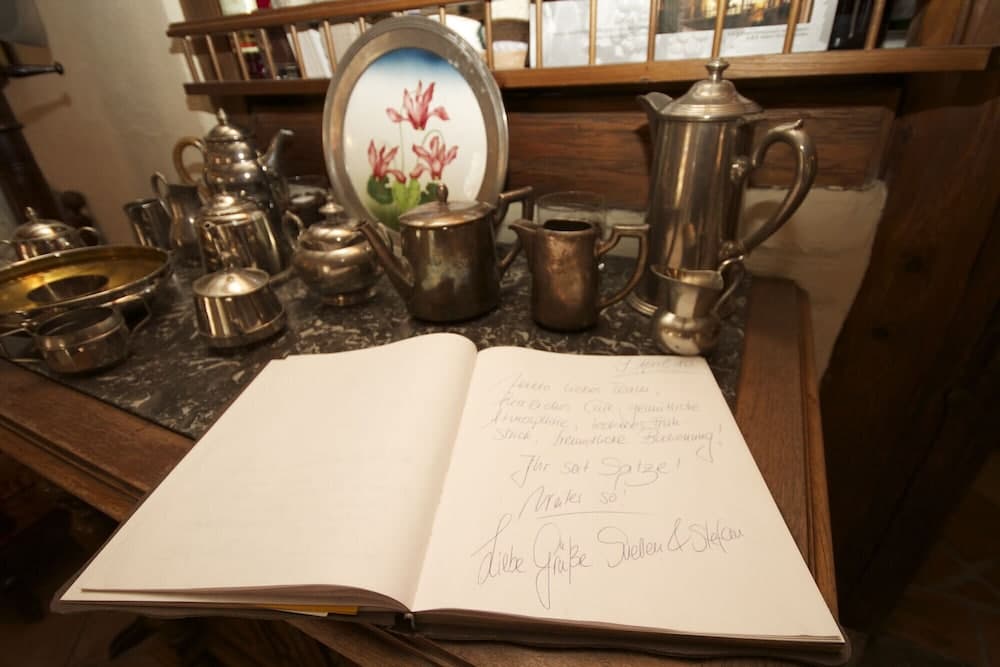 liebes Team,
Herzliches Café, gemütliche
Atmosphäre, leckeres Früh
stück, freundliche Bedienung!
Ihr seit Spitze!
Weiter so!
Liebe Grüße Suellen & Stefan